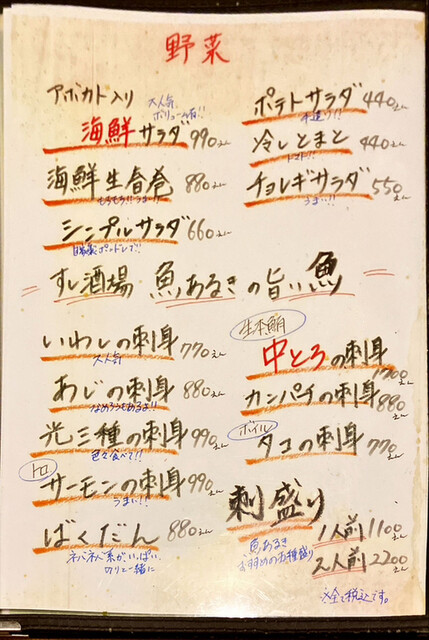 野菜
アボカド入り
大人気
ボリューム有!!
海鮮サラダ 990えん
海鮮生春巻 880えん
もちもち!!うまい!!
シンプルサラダ 660えん
自家製ドレッシングで!!
ポテトサラダ 440えん
手造り!!
冷しとまと 440えん
トマト!!
チョレギサラダ 550えん
うまい!!
すし酒場 魚あるきの旨い魚
いわしの刺身 770えん
大人気
あじの刺身 880えん
なめろうもあるよ!!
光三種の刺身 990えん
色々食べて!!
トロ
サーモンの刺身 990えん
うまい!!
ばくだん 880えん
ネバネバ系がいっぱい
のりと一緒に
生本鮪
中とろの刺身
カンパチの刺身 880えん
ボイル
タコの刺身 770えん
刺盛り
魚あるき
おすすめのお種盛り
1人前 1100えん
2人前 2200えん
※全て税込です。